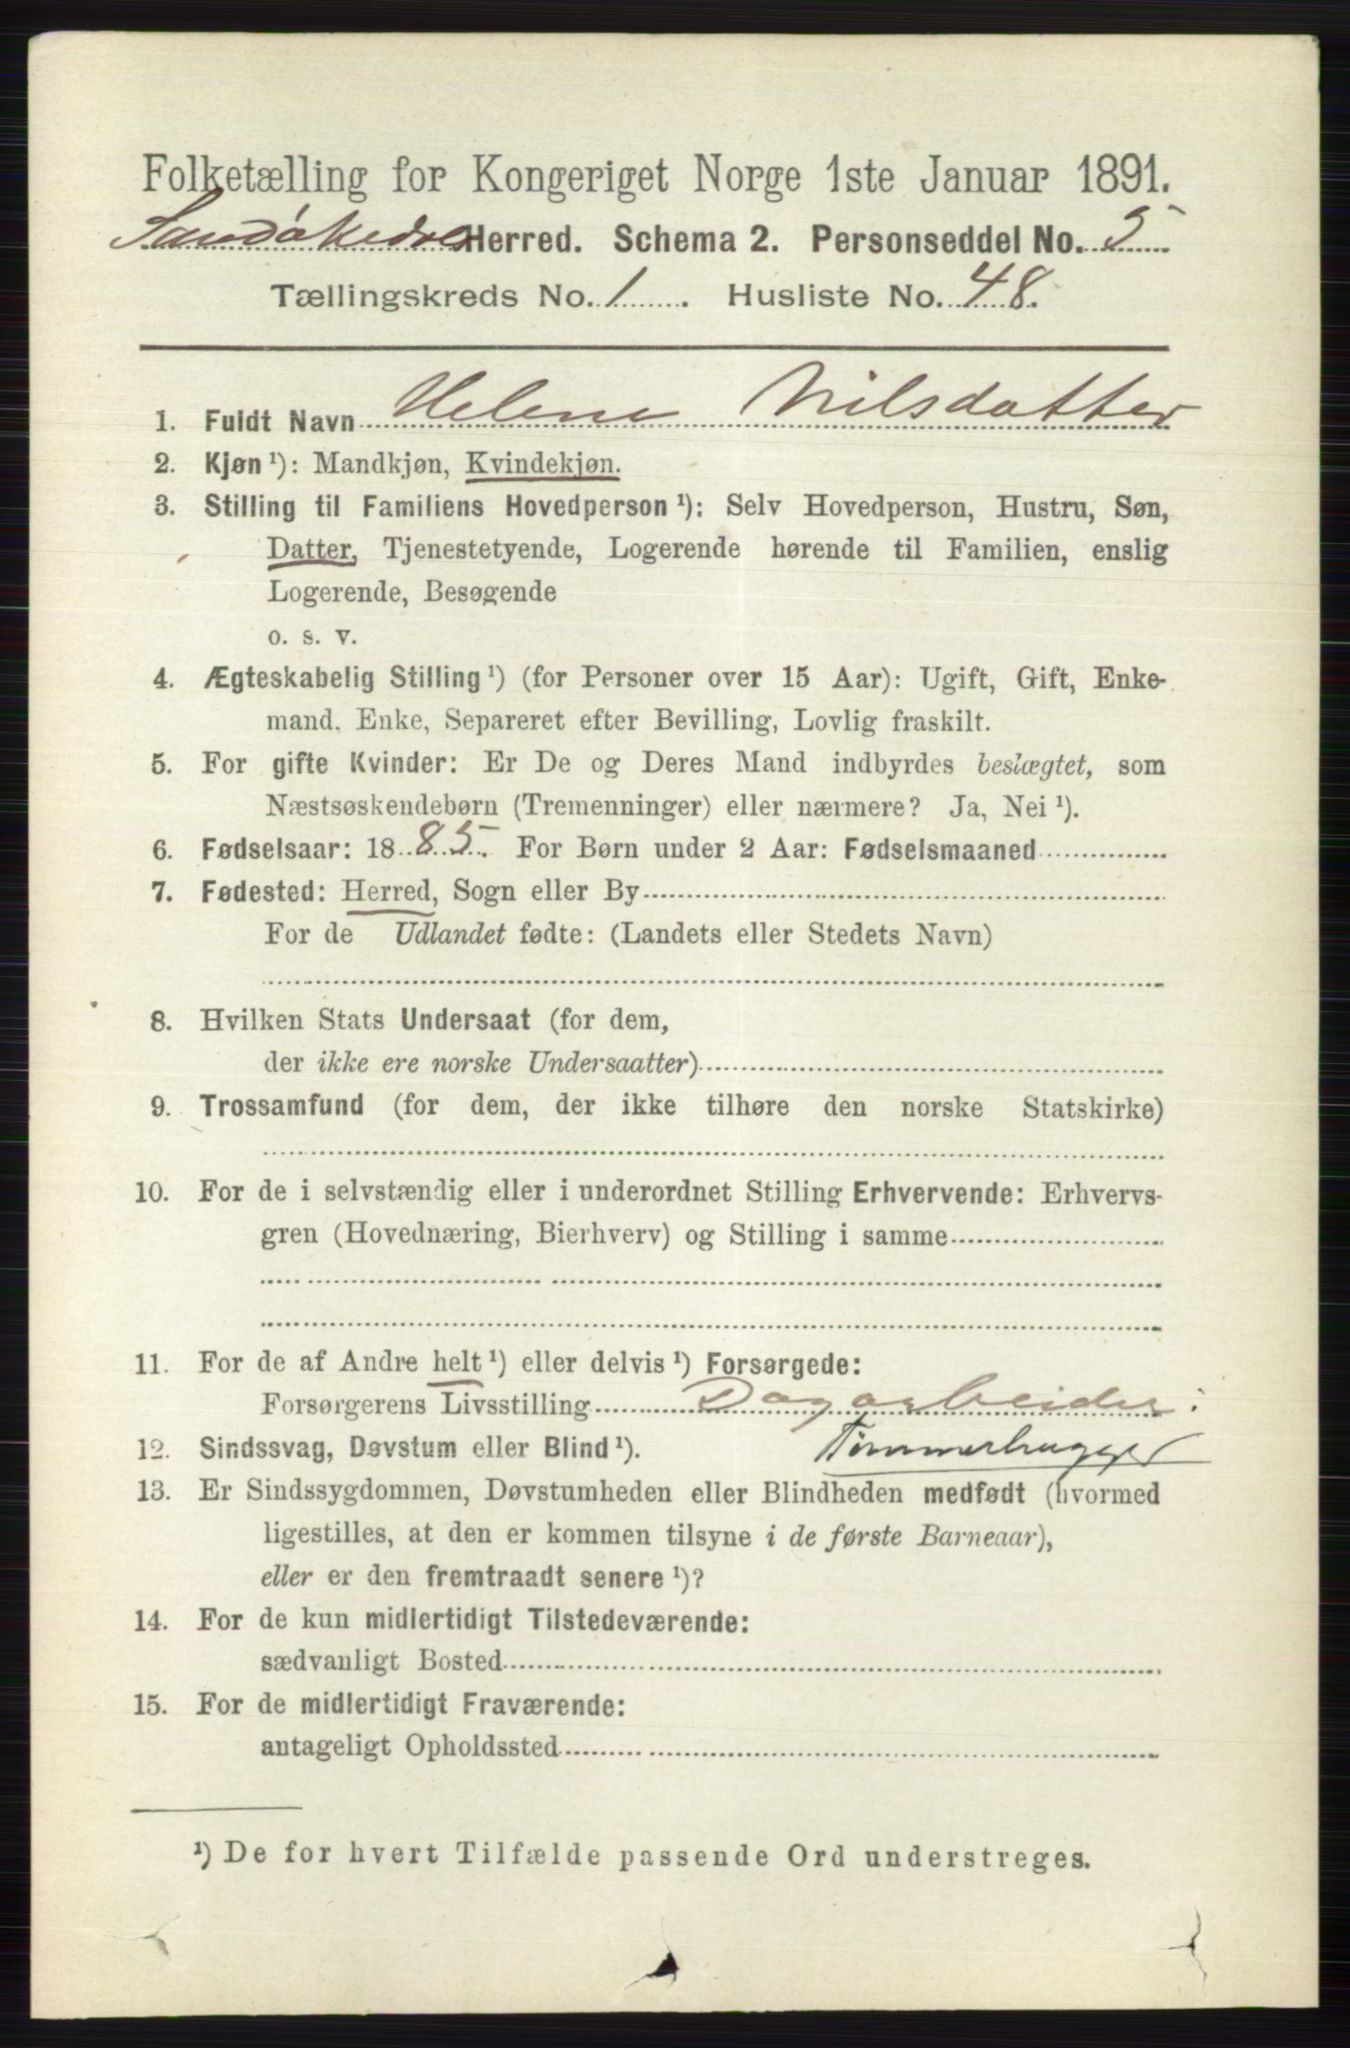 Folketælling for Kongeriget Norge 1ste Januar 1891.
Sandøkedals Herred. Schema 2. Personseddel No. 5
Tællingskreds No. 1. Husliste No. 48.
1. Fuldt Navn Helene Nilsdatter
2. Kjøn ¹): Mandkjøn, Kvindekjøn.
3. Stilling til Familiens Hovedperson ¹): Selv Hovedperson, Hustru, Søn,
Datter, Tjenestetyende, Logerende hørende til Familien, enslig
Logerende, Besøgende
o. s. v.
4. Ægteskabelig Stilling ¹) (for Personer over 15 Aar): Ugift, Gift, Enke-
mand, Enke, Separeret efter Bevilling, Lovlig fraskilt.
5. For gifte Kvinder: Er De og Deres Mand indbyrdes beslægtet, som
Næstsøskendebørn (Tremenninger) eller nærmere? Ja, Nei ¹).
6. Fødselsaar: 1885. For Børn under 2 Aar: Fødselsmaaned
7. Fødested: Herred, Sogn eller By
For de Udlandet fødte: (Landets eller Stedets Navn)
8. Hvilken Stats Undersaat (for dem,
der ikke ere norske Undersaatter)
9. Trossamfund (for dem, der ikke tilhøre den norske Statskirke)
10. For de i selvstændig eller i underordnet Stilling Erhvervende: Erhvervs-
gren (Hovednæring, Bierhverv) og Stilling i samme
11. For de af Andre helt ¹) eller delvis ¹) Forsørgede:
Forsørgerens Livsstilling Dagarbeider:
12. Sindssvag, Døvstum eller Blind ¹). Tømmerhugger
13. Er Sindssygdommen, Døvstumheden eller Blindheden medfødt (hvormed
ligestilles, at den er kommen tilsyne i de første Barneaar),
eller er den fremtraadt senere ¹)?
14. For de kun midlertidigt Tilstedeværende:
sædvanligt Bosted
15. For de midlertidigt Fraværende:
antageligt Opholdssted
¹) De for hvert Tilfælde passende Ord understreges.